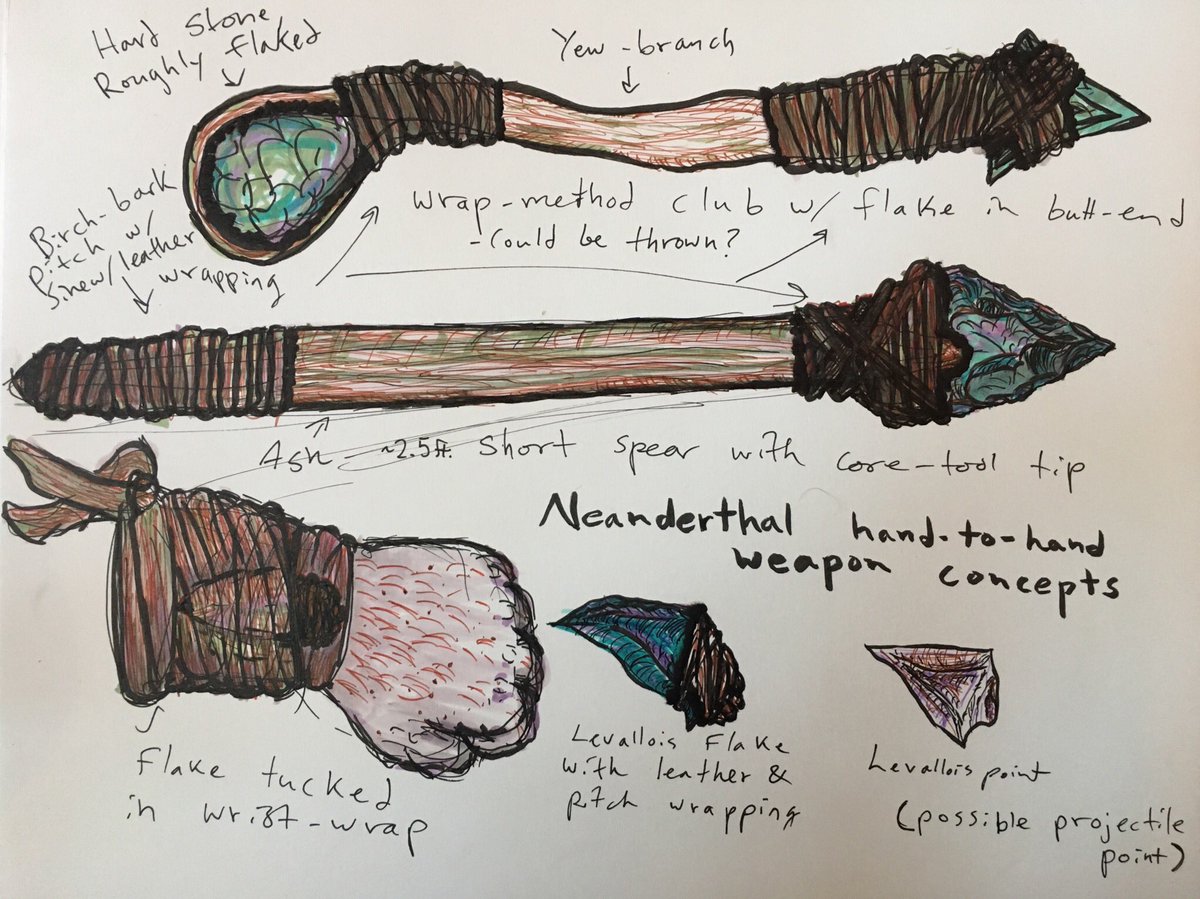 Hard Stone
Roughly flaked
Yew-branch
Birch-bark
pitch w/
sinew/leather
wrapping
wrap-method club w/ flake in butt-end
-could be thrown?
Ash - ~2.5ft. short spear with core-tool tip
Neanderthal hand-to-hand
weapon concepts
Flake tucked
in wrist-wrap
Levallois Flake
with leather &
pitch wrapping
Levallois point
(possible projectile
point)